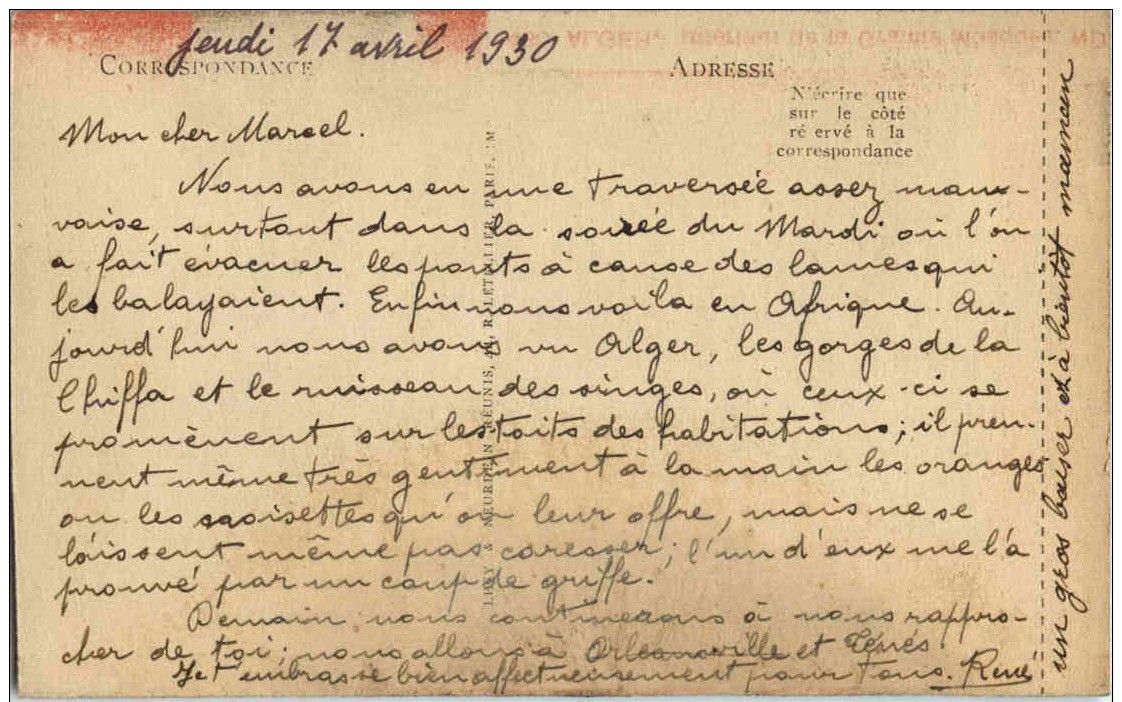 jeudi 17 avril 1930
CORRESPONDANCE
ADRESSE
N'écrire que
sur le côté
ré ervé à la
correspondance
Mon cher Marcel.
Nous avons eu une traversée assez mau-
vaise, surtout dans la soirée du Mardi où l'on
a fait évacuer les ponts à cause des lames qui
les balayaient. Enfin nous voila en Afrique. Au-
jourd'hui nous avons vu Alger, les gorges de la
Chiffa et le ruisseau des singes, où ceux-ci se
promènent sur les toits des habitations; il pren-
nent même très gentiment à la main les oranges
ou les noisettes qu'on leur offre, mais ne se
laissent même pas caresser; l'un d'eux me l'a
prouvé par un coup de griffe.
Demain nous continuerons à nous rappro-
cher de toi; nous allons à Orléansville et Ténès.
Je t'embrasse bien affectueusement pour tous. René
un gros baiser et à bientôt
LEVY & NEURDEIN RÉUNIS, PARIS
ALGER. Intérieur de la Grande Mosquée.